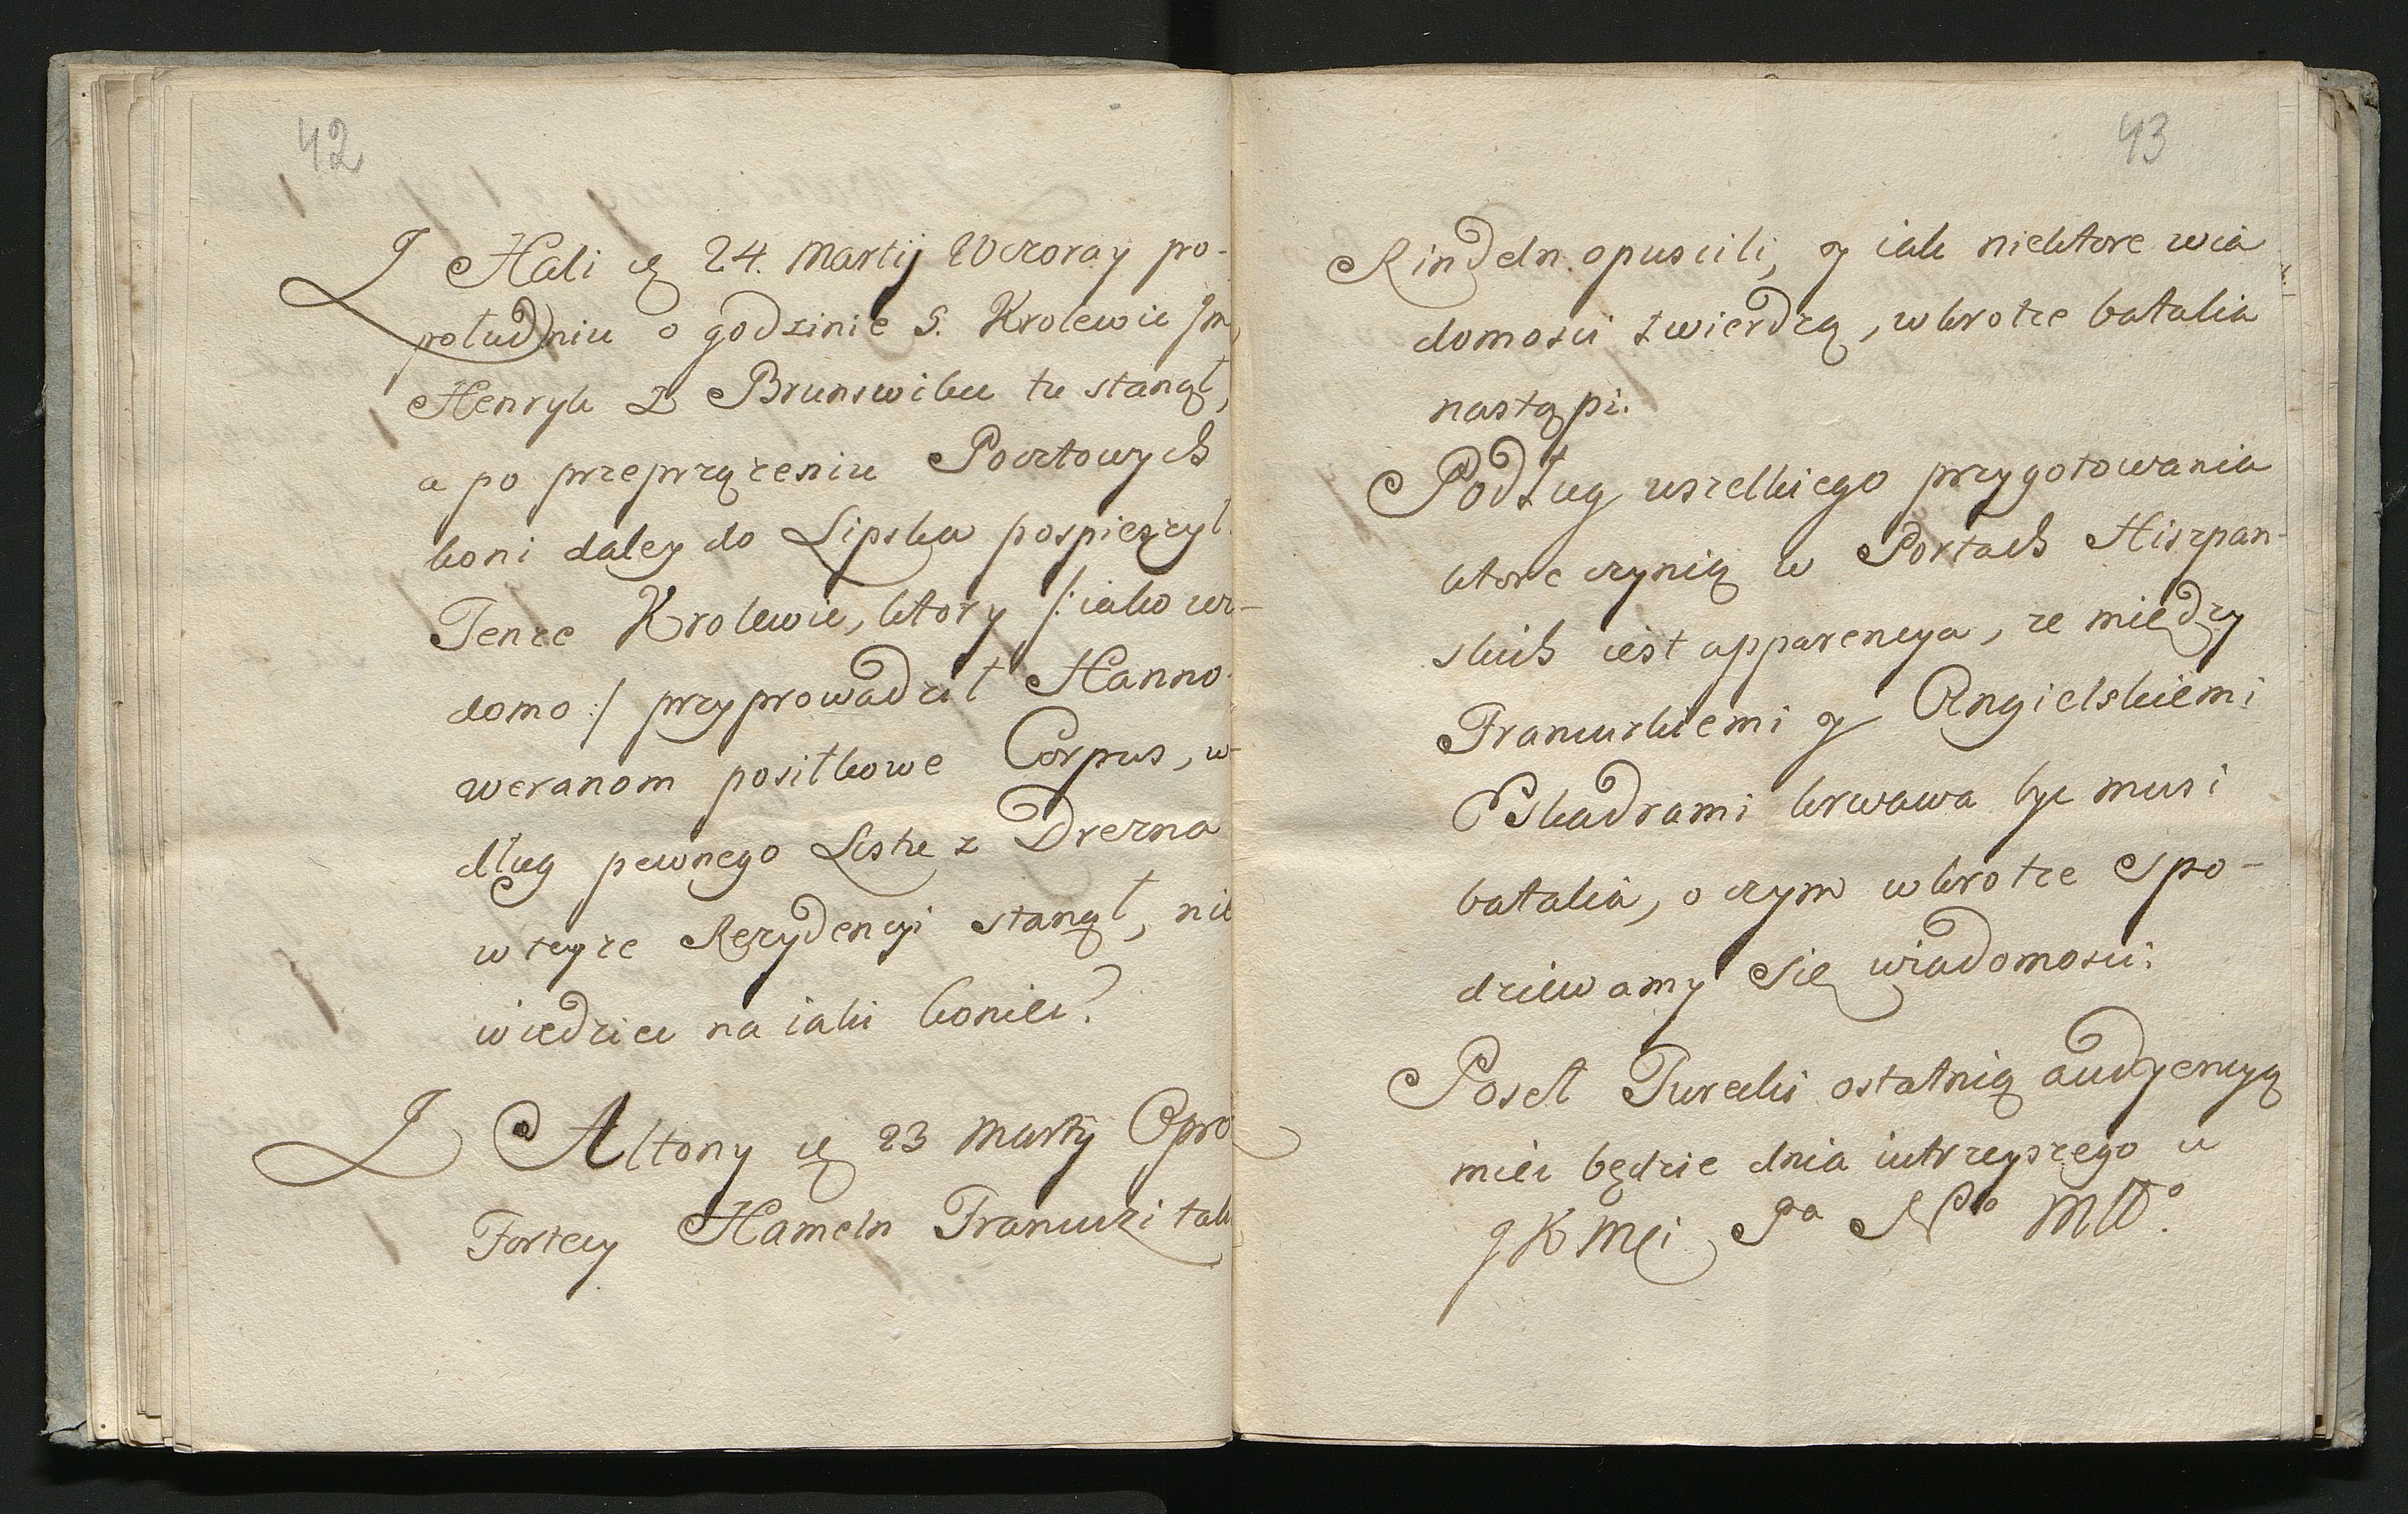 42
Z Hali d 24. Martij Wczoray po-
południu o godzinie 5. Krolewic Jm,
Henryk z Brunswiku tu stanął,
a po przeprzęzeniu Pocztowych
koni daley do Lipska pospieszył.
Tenze Krolewic, ktory /: iako wi-
domo :/ przyprowadził Hanno-
weranom positkowe Corpus, w-
dług pewnego Listu z Drezna
w teyze Rezydencyi stanął, nie
wiedziec na iaki koniec?
Z Altony d 23 Martij Opro
Fortecy Hameln Francuzi tak
43
Rindeln opuscili, y iak niektore wia
domosci twierdzą, wkrotce batalia
nastąpi.
Podług wszelkiego przygotowania
ktore czynią w Portach Hiszpan-
skich iest apparencya, ze między
Francuzkiemi y Angielskiemi
Eskadrami krwawa byc musi
batalia, o czym wkrotce spo-
dziewamy się wiadomosci.
Poseł Turecki ostatnią audyencyą
miec będzie dnia iutrzeyszego u
J K Mci Pa N